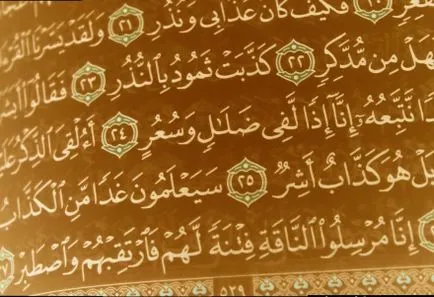 فَكَيْفَ كَانَ عَذَابِى وَنُذُرِ ٢١ وَلَقَدْ يَسَّرْنَا
فَهَلْ مِن مُّدَّكِرٍ ٢٢ كَذَّبَتْ ثَمُودُ بِالنُّذُرِ ٢٣ فَقَالُوٓا۟
نَّتَّبِعُهُۥٓ إِنَّآ إِذًا لَّفِى ضَلَٰلٍ وَسُعُرٍ ٢٤ أَءُلْقِىَ الذِّكْرُ
بَلْ هُوَ كَذَّابٌ أَشِرٌ ٢٥ سَيَعْلَمُونَ غَدًا مَّنِ الْكَذَّابُ
إِنَّا مُرْسِلُوا۟ النَّاقَةِ فِتْنَةً لَّهُمْ فَارْتَقِبْهُمْ وَاصْطَبِرْ
٥٢٩